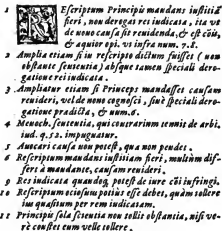 1 REscriptum Principis mandans iustitiã
fieri, non derogat rei iudicata, ita vt
de nouo causa sit reuidenda, & est cõis,
& æquior opi. vi infra num. 7.8.
2 Amplia etiam si in rescripto dictum fuisset ( non
obstante sententia) absque tamen speciali dero-
gatione rei iudicata.
3 Ampliatur etiam si Princeps mandasset causam
reuideri, vel de nouo cognosci, sinè speciali dero-
gatione prædicta, & num.6.
4 Reuoch, sententia, qui contrarium tenuit de arbi.
iud. q. 52. impugnatur.
5 Auocari causa non potest, qua non pendet.
6 Rescriptum mandans iustitiam fieri, multùm dif-
fert à mandante, causam reuideri.
9 Res iudicata quadoq. potest de iure cõi infringi.
10 Rescriptum ociosum potius esse debet, quàm tollere
ius quæsitum per rem iudicatam.
11 Principis sola scientia non tollit obstantia, nisi ve-
rè constet eum velle tollere.